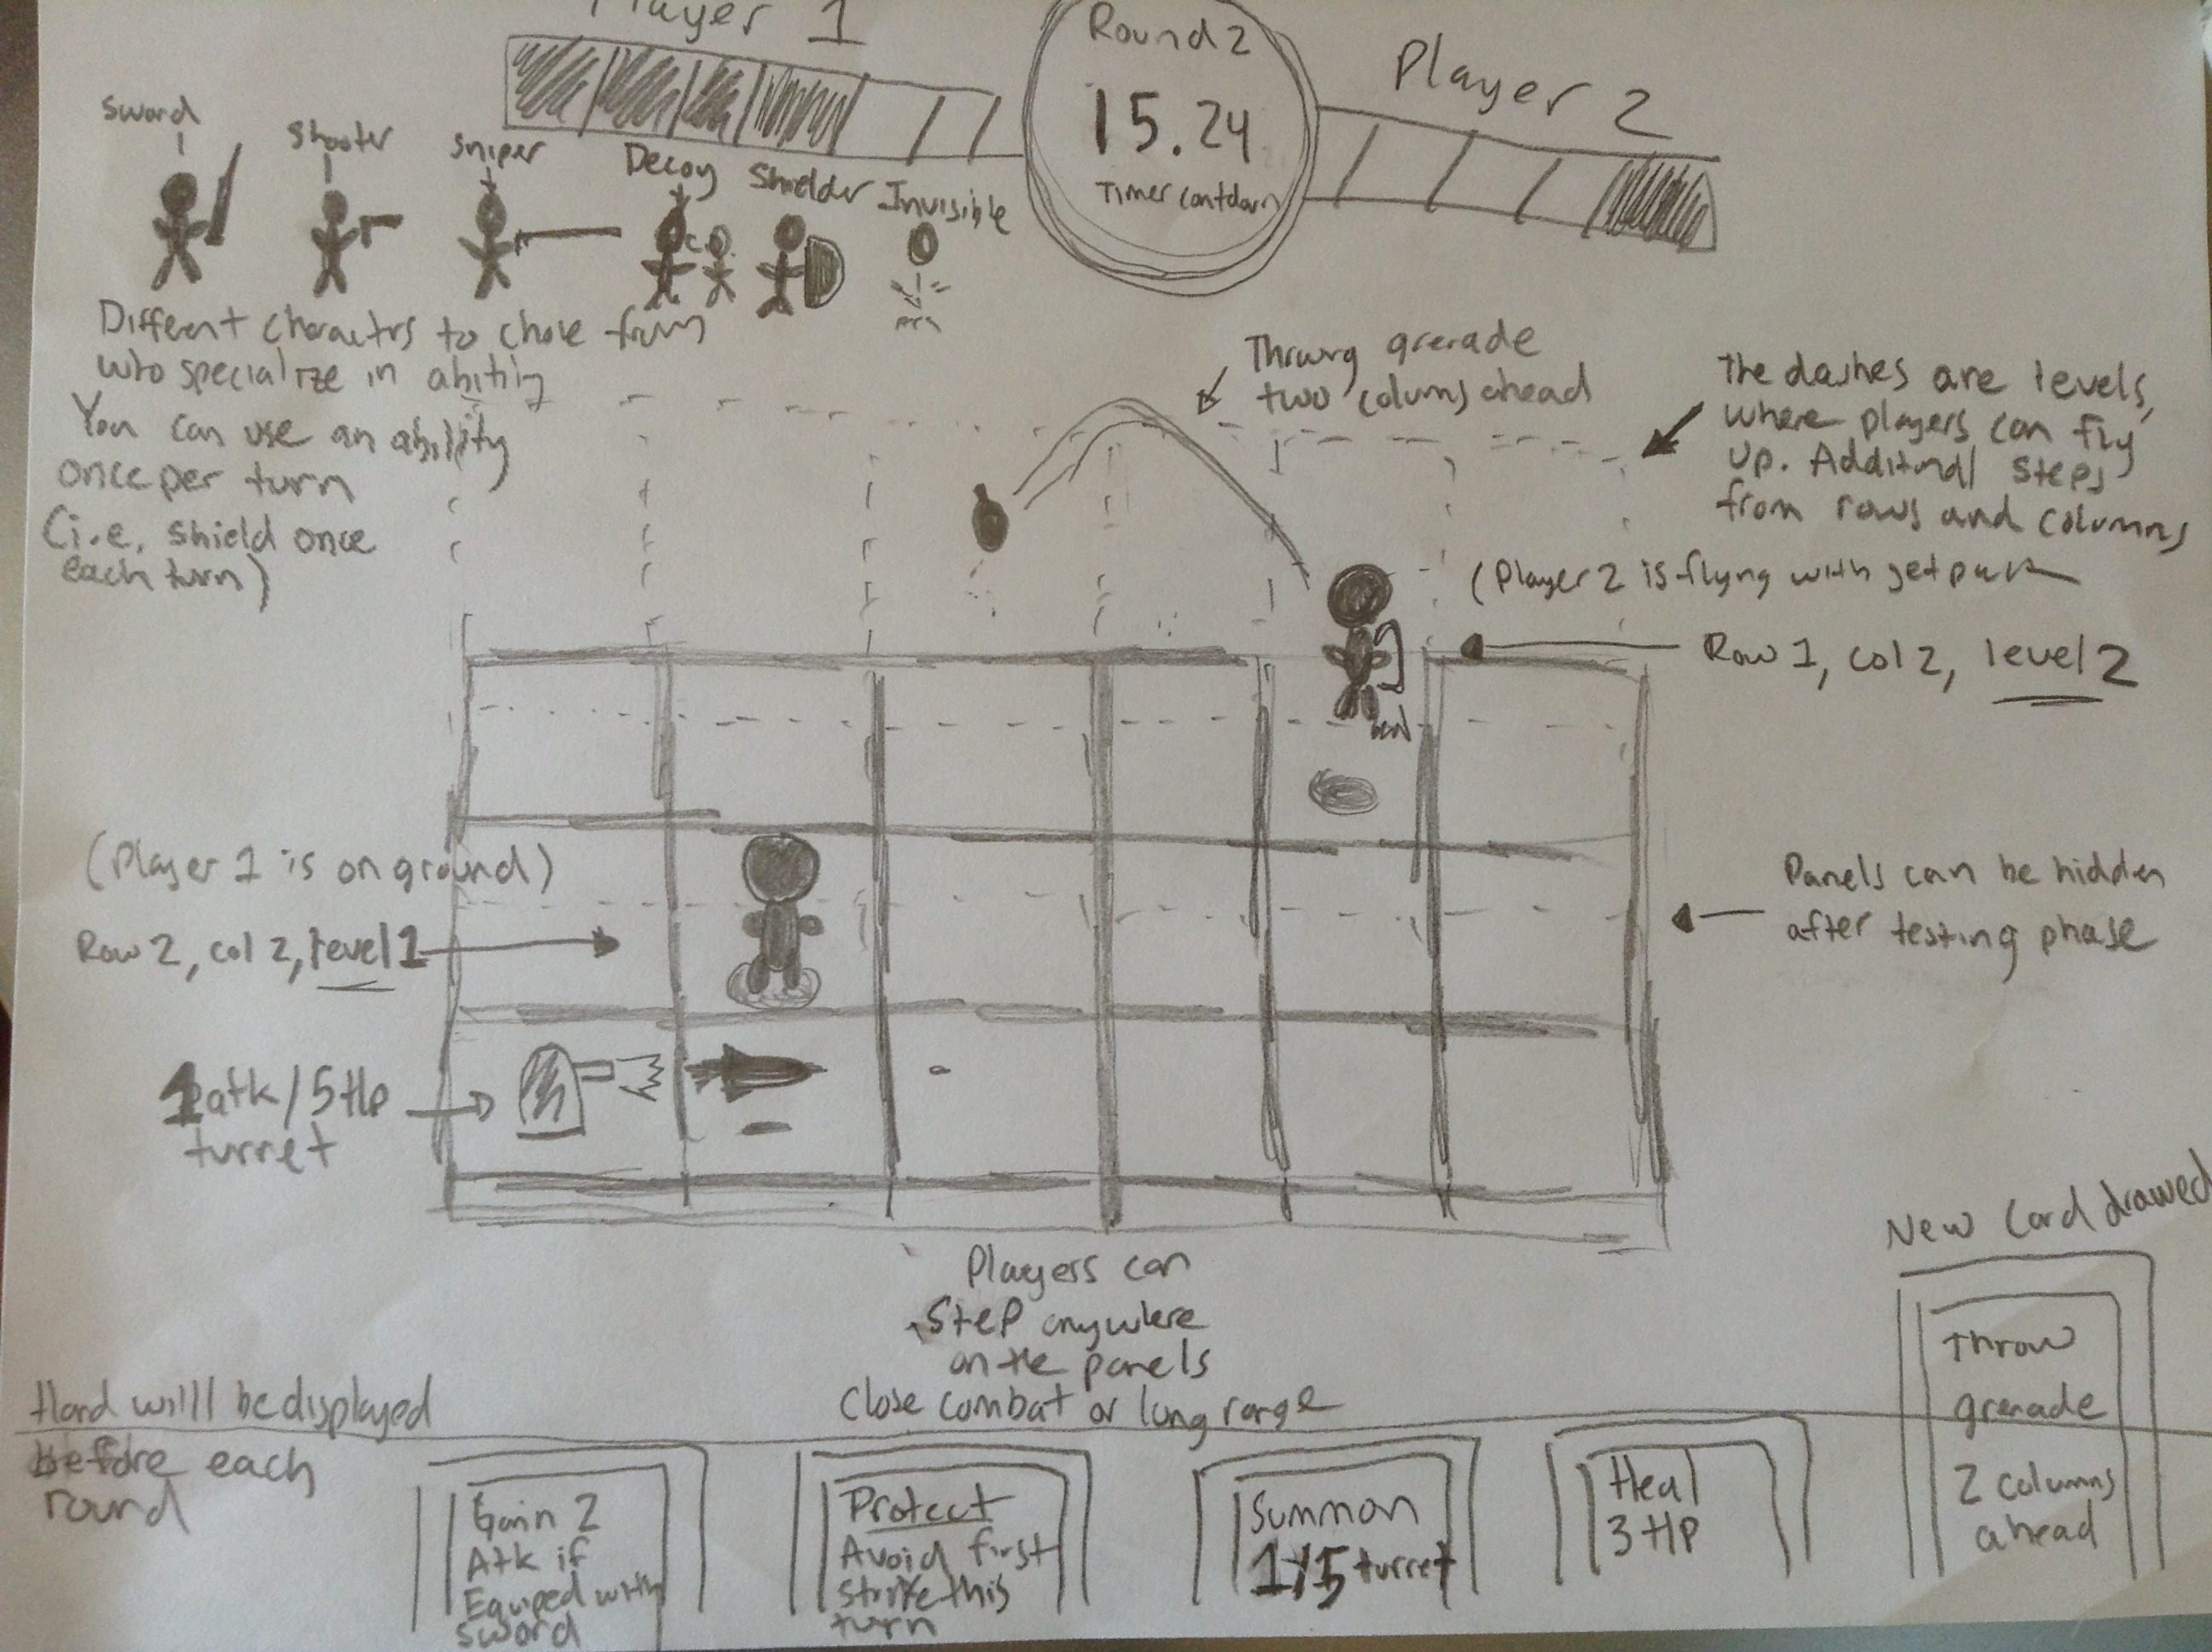 Player 1
Round 2
15.24
Timer contdown
Player 2
Sword
Shooter
Sniper
Decoy
Shielder
Invisible
Different charactrs to chose from
who specialize in ability
You can use an ability
once per turn
(i.e. shield once
each turn)
Throwing grenade
two columns ahead
The dashes are levels,
where players can fly
up. Additional steps
from rows and columns
(Player 2 is flying with jetpack
Row 1, col 2, level 2
(Player 1 is on ground)
Row 2, col 2, level 1
Panels can be hidden
after testing phase
1 atk/5 Hp
turret
Players can
step anywhere
on the panels
Close combat or long range
New Card drawed
Hand willl be displayed
before each
round
Gain 2
Atk if
Equiped with
sword
Protect
Avoid first
strike this
turn
Summon
1/5 turret
Heal
3 HP
Throw
grenade
2 columns
ahead